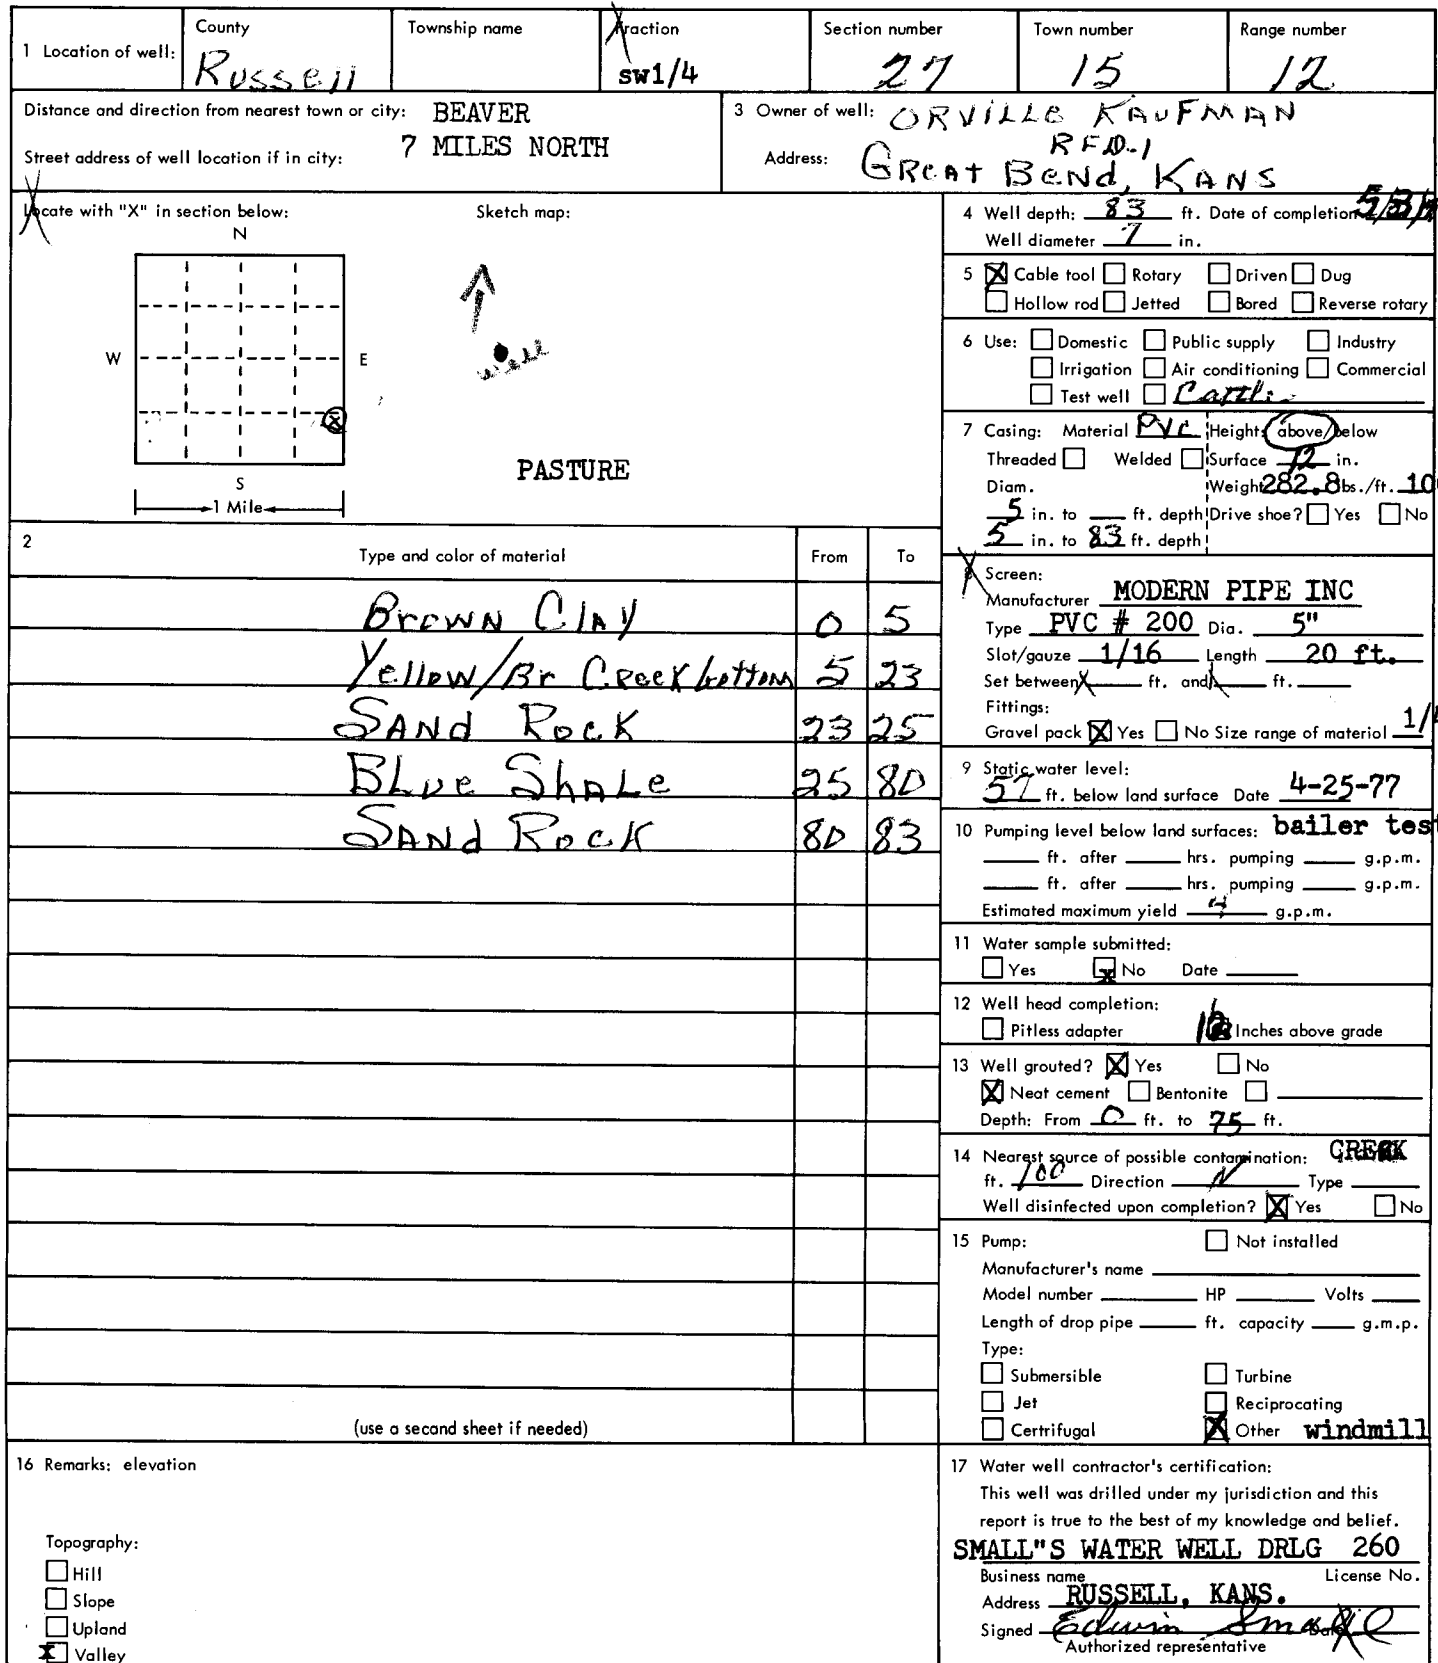 1 Location of well: County Russell Township name Fraction sw1/4 Section number 27 Town number 15 Range number 12
Distance and direction from nearest town or city: BEAVER
7 MILES NORTH
Street address of well location if in city:
3 Owner of well: ORVILLE KAUFMAN
RFD-1
Address: GREAT BEND, KANS
Locate with "X" in section below: Sketch map:
N
W E
X
S
1 Mile
well
PASTURE
4 Well depth: 83 ft. Date of completion
Well diameter 7 in.
5 X Cable tool Rotary Driven Dug
Hollow rod Jetted Bored Reverse rotary
6 Use: Domestic Public supply Industry
Irrigation Air conditioning Commercial
Test well Cattle
7 Casing: Material PVC Height: above/below
Threaded Welded Surface 12 in.
Diam. Weight 282.8 lbs./ft. 10
5 in. to ft. depth Drive shoe? Yes No
5 in. to 83 ft. depth
2 Type and color of material From To
Brown Clay 0 5
Yellow/Br Creek bottom 5 23
SAND ROCK 23 25
BLUE SHALE 25 80
SAND ROCK 80 83
(use a second sheet if needed)
8 Screen:
Manufacturer MODERN PIPE INC
Type PVC # 200 Dia. 5"
Slot/gauze 1/16 Length 20 ft.
Set between ft. and ft.
Fittings:
Gravel pack X Yes No Size range of material 1/
9 Static water level:
57 ft. below land surface Date 4-25-77
10 Pumping level below land surfaces: bailer test
ft. after hrs. pumping g.p.m.
ft. after hrs. pumping g.p.m.
Estimated maximum yield 4 g.p.m.
11 Water sample submitted:
Yes X No Date
12 Well head completion:
Pitless adapter Inches above grade
13 Well grouted? X Yes No
X Neat cement Bentonite
Depth: From 0 ft. to 75 ft.
14 Nearest source of possible contamination: CREEK
ft. 100 Direction N Type
Well disinfected upon completion? X Yes No
15 Pump: Not installed
Manufacturer's name
Model number HP Volts
Length of drop pipe ft. capacity g.m.p.
Type:
Submersible Turbine
Jet Reciprocating
Certrifugal X Other windmill
16 Remarks: elevation
Topography:
Hill
Slope
Upland
X Valley
17 Water well contractor's certification:
This well was drilled under my jurisdiction and this
report is true to the best of my knowledge and belief.
SMALL"S WATER WELL DRLG 260
Business name License No.
Address RUSSELL, KANS.
Signed Edwin Small Date
Authorized representative